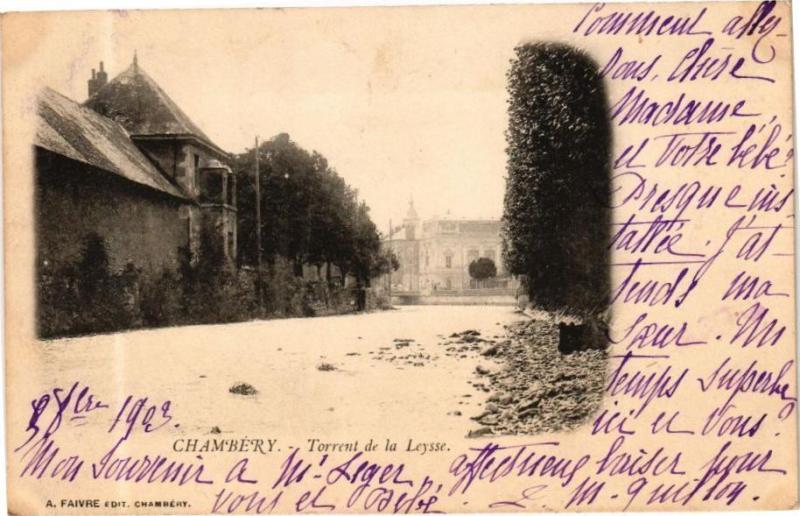 Comment allez-
Vous, Chère
Madame,
et Votre bébé?
Presque ins
tallée. J'at-
tends ma
Sœur. Un
temps superbe
ici et Vous?
8bre 1903.
CHAMBÉRY. - Torrent de la Leysse.
Mon Souvenir à Mr Leger, affectueux baiser pour
vous et Bébé.
A. FAIVRE EDIT. CHAMBÉRY.